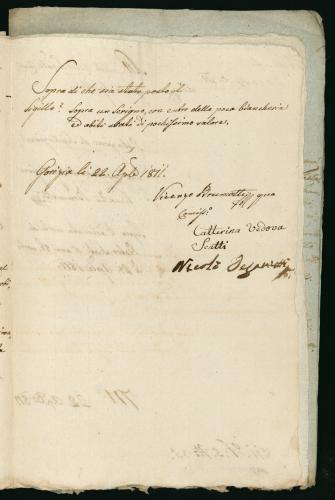 Sopra di che sia stato posto il
Sigillo? Sopra un Scrigno, con entro della poca biancheria
ed abiti usati di pochissimo valore.
Gorizia li 22 Aple 1811.
Vicenzo qua
Comiss.o
Catterina Vedova
Scitti
Nicolò